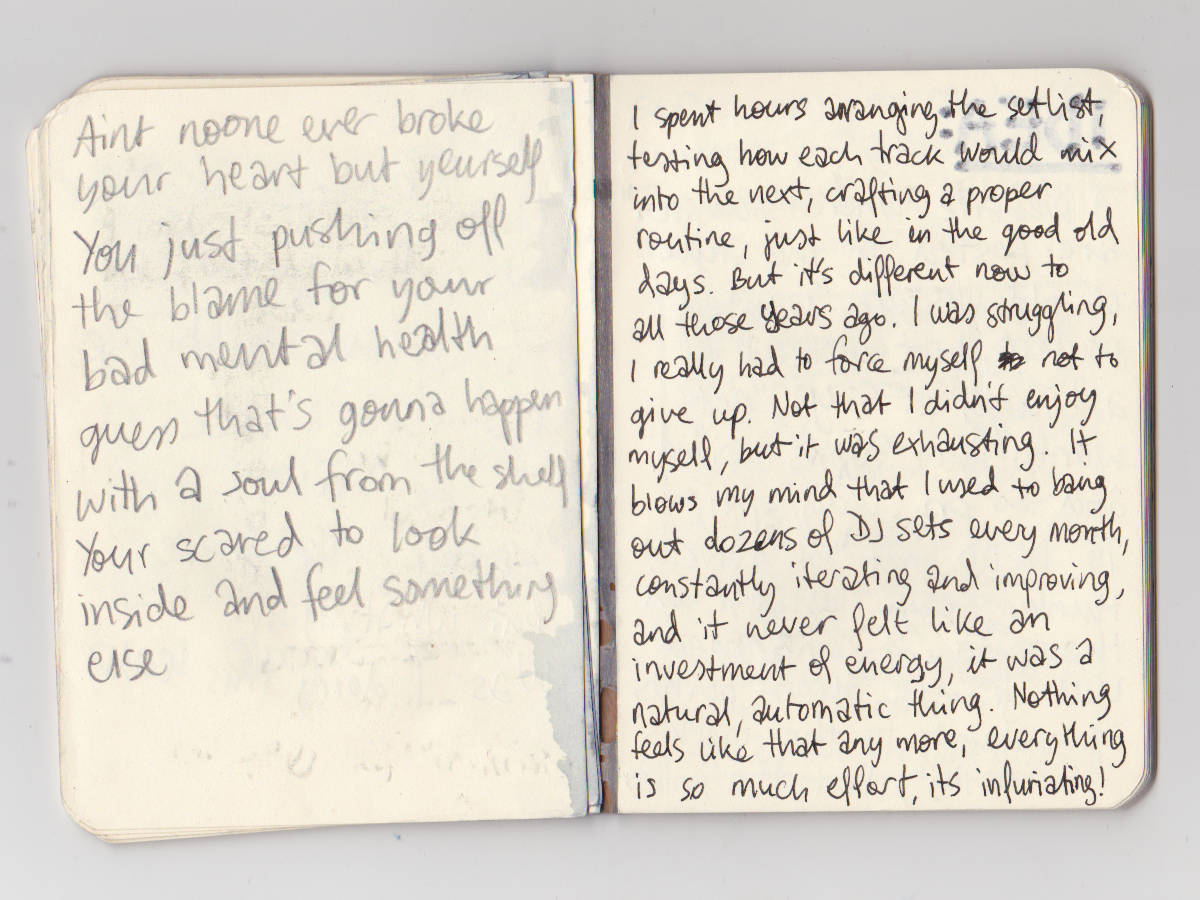 Aint noone ever broke
your heart but yourself
You just pushing off
the blame for your
bad mental health
guess that's gonna happen
with a soul from the shelf
Your scared to look
inside and feel something
else
I spent hours arranging the setlist,
testing how each track would mix
into the next, crafting a proper
routine, just like in the good old
days. But it's different now to
all those years ago. I was struggling,
I really had to force myself not to
give up. Not that I didn't enjoy
myself, but it was exhausting. It
blows my mind that I used to bang
out dozens of DJ sets every month,
constantly iterating and improving,
and it never felt like an
investment of energy, it was a
natural, automatic thing. Nothing
feels like that any more, everything
is so much effort, its infuriating!